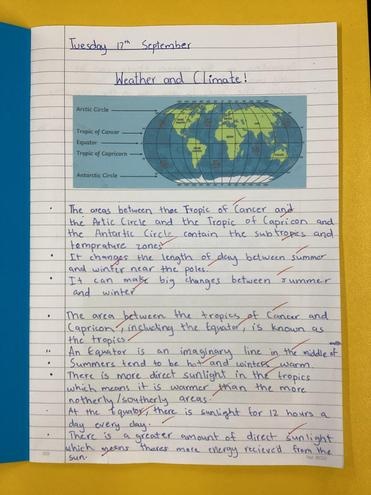 Tuesday 17th September
Weather and Climate!
Arctic Circle
Tropic of Cancer
Equator
Tropic of Capricorn
Antarctic Circle
The areas between thoe Tropic of Cancer and
the Artic Circle and the Tropic of Capricon and
the Antartic Circle contain the subtropics and
temprature zones
It changes the length of day between summer
and winter near the poles.
It can make big changes between summer
and winter
The area between the tropics of Cancer and
Capricorn, including the Equator, is known as
the tropics.
An Equator is an imaginary line in the middle of
Summers tend to be hot and winters warm.
There is more direct sunlight in the tropics
which means it is warmer than the more
notherly/southerly areas.
At the Equator, there is sunlight for 12 hours a
day every day.
There is a greater amount of direct sunlight
which means thares more energy recieved from the
sun.